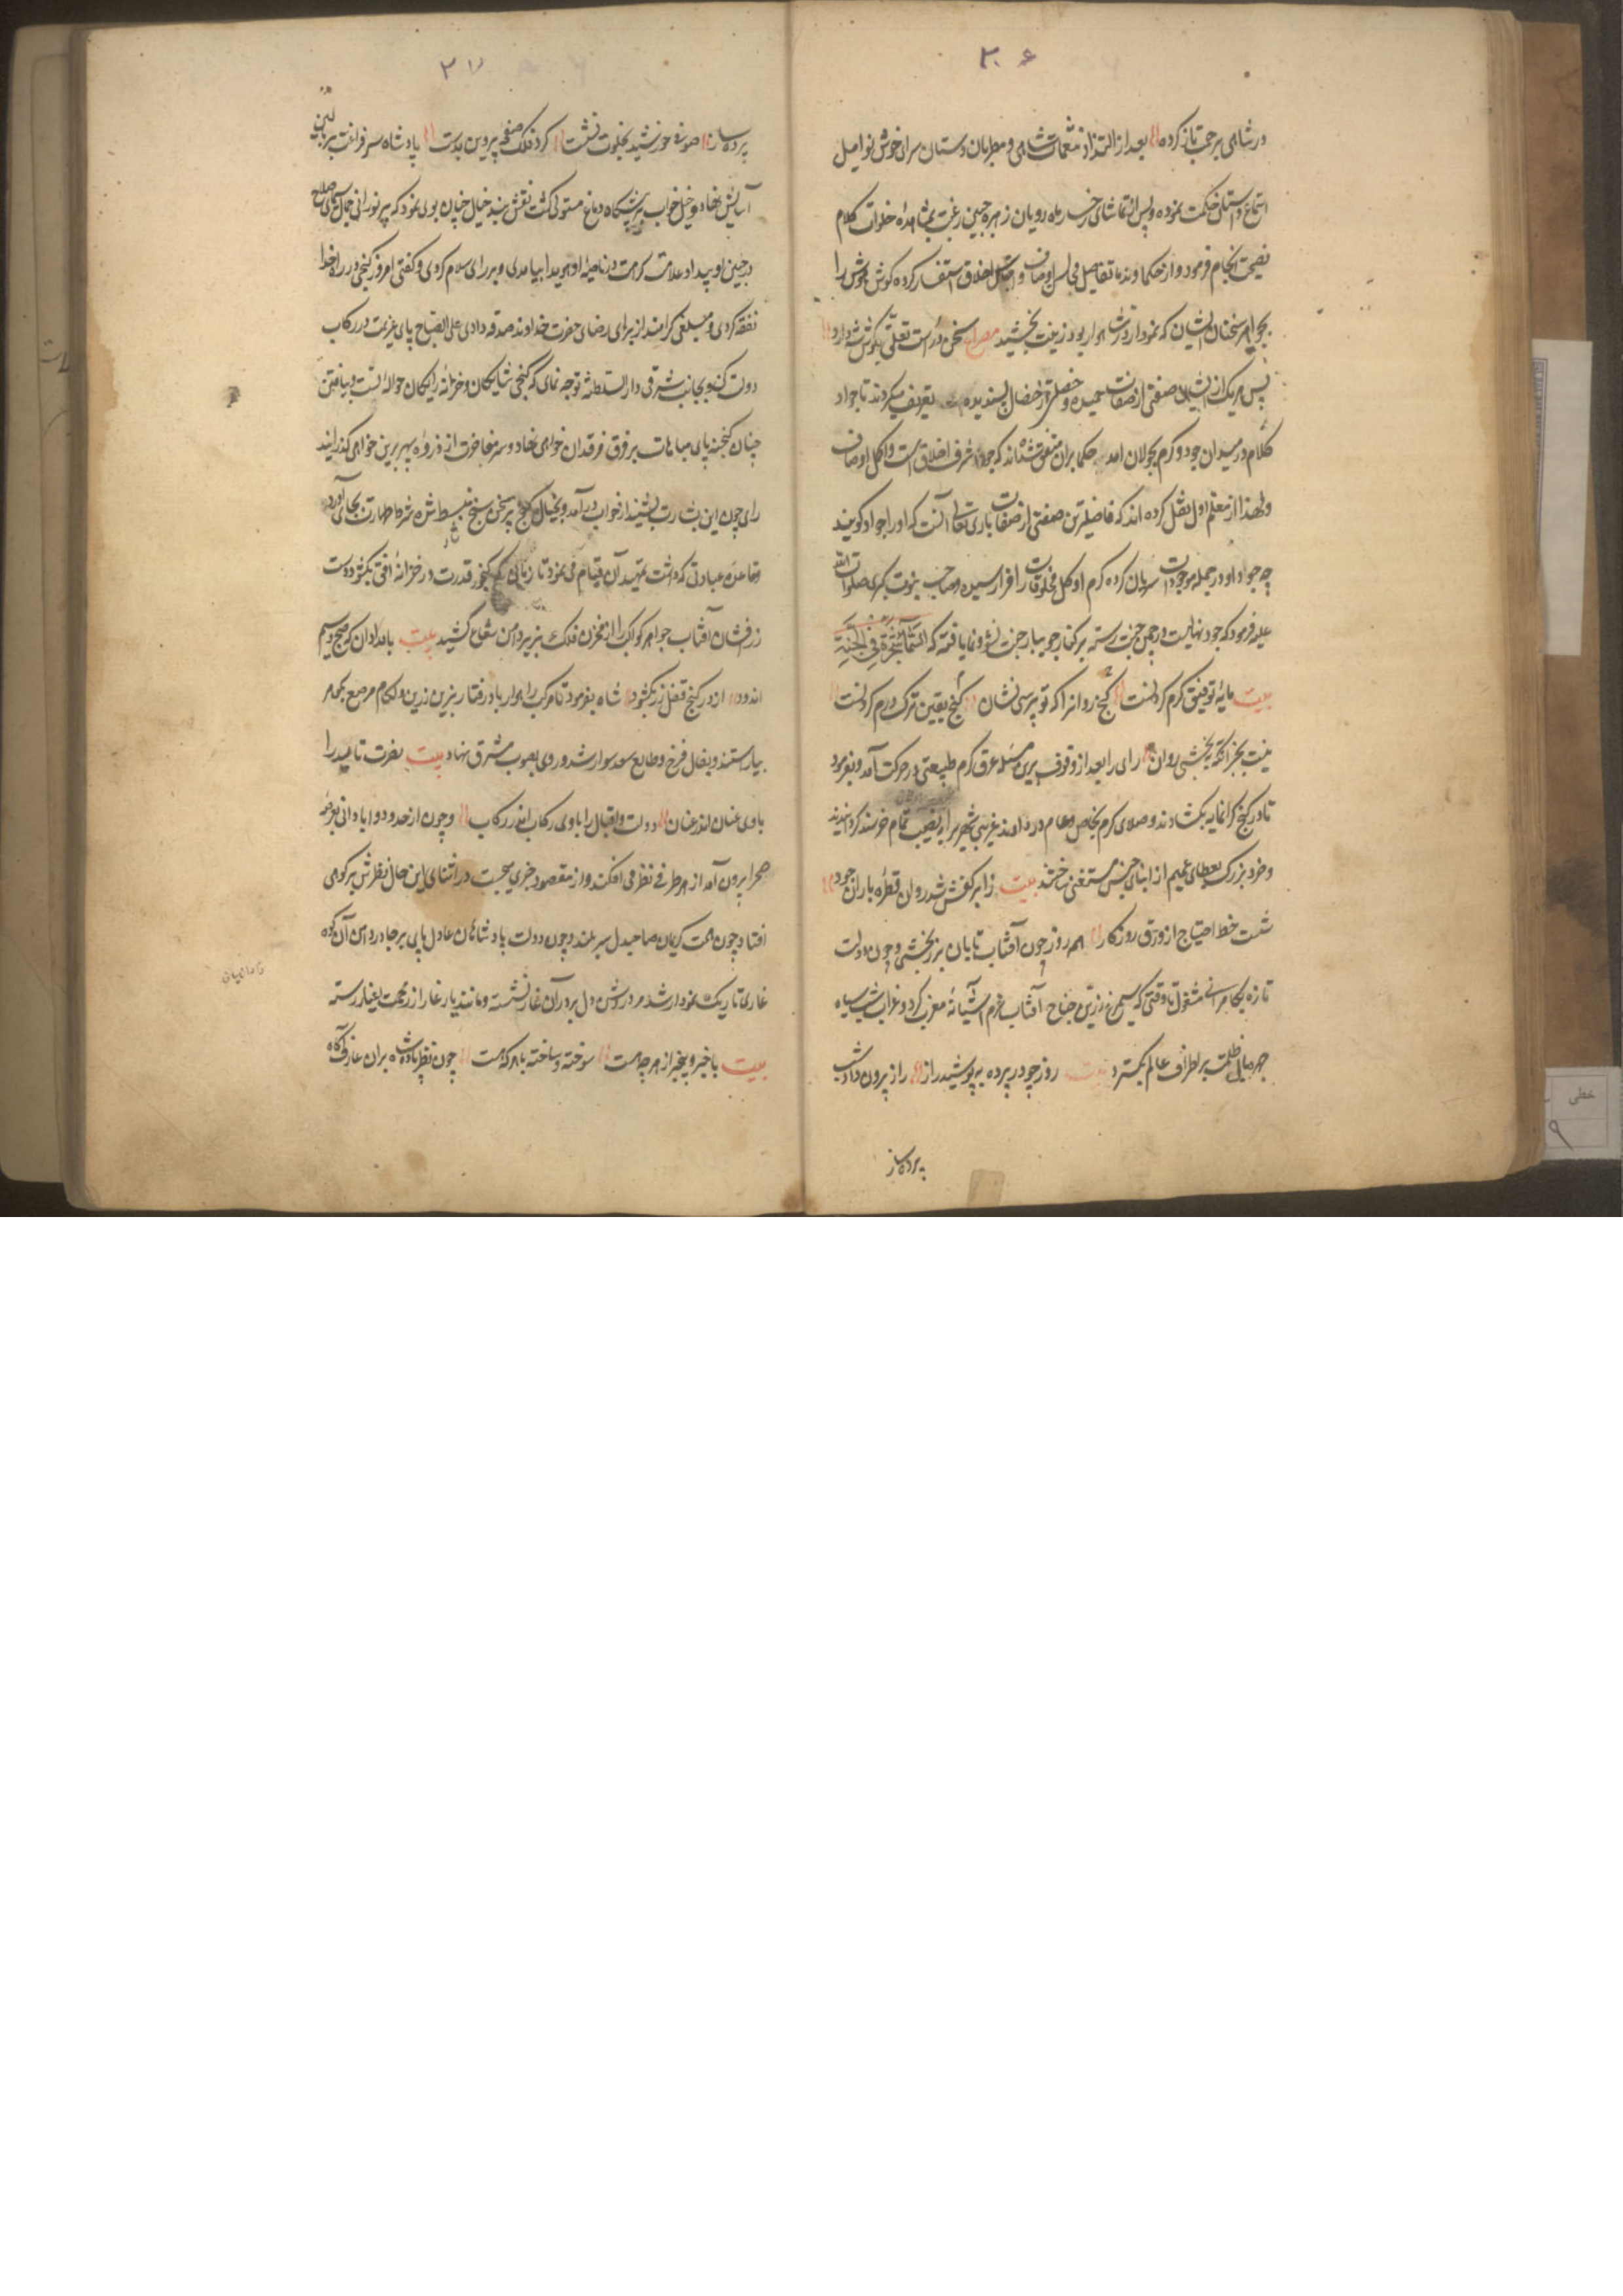 ۳۰۶
در شاهی مرحمت تازه کرده بعد از التذاذ نغمات شاهی و مطربان دستان سرای خوش نوا میل
استماع داستان حکمت نموده و پس از تماشای رخسار ماه رویان زهره جبین رغبت بمشاهده خلوات کلام
نصیحت انجام فرمود و از حکما و ندما تفاصیل محاسن اوصاف و اجمال اخلاق استفسار کرده گوش هوش را
بجواهر سخنان ایشان که نمودار در شاهوار بود زینت بخشید مصراع سخن در است تعلق بگوش شه دارد
پس هر یک از ایشان صفتی از صفات حمیده و خصلتی از خصال پسندیده تعریف میکردند تا جواد
کلام در میدان جود و کرم بجولان آمد حکما بران متفق شده‌اند که جود اشرف اخلاق است و اکمل اوصاف
و لهذا از معلم اول نقل کرده اند که فاضلترین صفتی از صفات باری تعالی آنست که او را جواد گویند
چه جود او در جمله موجودات سریان کرده کرم او کل مخلوقات را فرا رسیده و صاحب نبوت کبری صلوات الله
علیه فرمود که جود نهالیست در چمن جنت رسته بر کنار جویبار جنت نشو و نما یافته که السخا شجرة فی الجنة
بیت مایه توفیق کرم کردنست گنج روانرا که تو پرسی نشان گنج یقین ترک درم کردنست
نیست بجز آنکه ببخشی روان رای را بعد از وقوف برین مسئله عرق کرم طبیعتی در حرکت آمد و بفرمود
تا در گنج گرانمایه بگشادند و صلای کرم بخاص و عام در دادند غریب و شهری را بنصیب تمام خرسند گردانیدند
و خرد و بزرگ بعطای عمیم از ابنای جنس مستغنی ساختند بیت ز ابر کفش شد روان قطره باران جود
شست خط احتیاج از ورق روزگار همه روز چون آفتاب تابان بزر بخشی و چون دولت
تازه بکامرانی مشغول تا وقتی که سیمرغ زرین جناح آفتاب عزم آشیانه مغرب کرد و غراب شب سیاه
چهره بال ظلمت بر اطراف عالم بگسترد بیت روز چو در پرده بپوشید راز راز برون داد شب
پرده ساز
۳۷
پرده ساز صوفی خورشید بخلوت نشست کرد فلک صفحه پروین بدست پادشاه سر فراغت بر بالین
آسایش نهاد و خیل خواب بر پیشگاه دماغ مستولی گشت نقش بند خیال چنان بوی نمود که پیر نورانی جمال که سیمای صلاح
در جبین او پیدا و علامت کرامت در ناصیه او هویدا بیامدی و بر رای سلام کردی و گفتی امروز گنجی در راه خدا
نفقه کردی و مبلغی گرامند از برای رضای حضرت خداوند صدقه دادی علی الصباح پای عزیمت در رکاب
دولت کن و بجانب شرقی دار السلطنه توجه نمای که گنجی شایگان و خزانه رایگان حواله تست و بیافتن
چنان گنجینه پای مباهات بر فرق فرقدان خواهی نهاد و سر مفاخرت از ذروه سپهر برین خواهی گذرانید
رای چون این بشارت بشنید از خواب درآمد و بخیال گنج و پیر سخن سنج منبسط شد و شرط طهارت بجای آورد
و بقاعده عبادتی که داشت بتمهید آن قیام می نمود تا زمانی که گنجور قدرت در خزانه افق بگشود و دست
زرفشان آفتاب جواهر کواکب را از مخزن فلک بزیر دامن شعاع کشید بیت بامدادان که صبح سیم
اندود از در گنج قفل زر بگشود شاه بفرمود تا مرکب راهوار باد رفتار بزین زرین و لگام مرصع بگهر
بیاراستند و بفال فرخ و طالع سعد سوار شد و روی بصوب مشرق نهاد بیت نصرت تایید را
با وی عنان اندر عنان دولت و اقبال را با وی رکاب اندر رکاب و چون از حدود و آبادانی بعرصه
صحرا برون آمد از هر طرفی نظر می افکند و از مقصود خبری میجست در اثنای این حال نظرش بر کوهی
افتاد چون همت کریمان صاحبدل سر بلند و چون دولت پادشاهان عادل پای بر جا در دامن آن کوه
غاری تاریک نمودار شد مرد روشن دل بر در آن غار نشسته و مانند یار غار از زحمت اغیار رسته
بیت با خبر و بیخبر از هر چه هست سوخته و ساخته با هر که هست چون نظر پادشاه بران عارف آگاه
خطی
۹